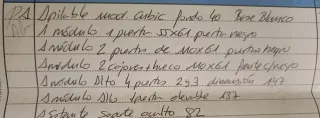 1 Apilable mod. Cubic fondo 40 Base Blanco
1 módulo 1 puerta 55x61 puerta negro
1 módulo 2 puertas de 110x61 puertas negro
1 módulo 2 cajones + hueco 110x61 frente negro
1 módulo Alto 4 puertas 2y3 dimensión 147
1 módulo Alto 1 puerta 137
1 Estante soporte oculto 82